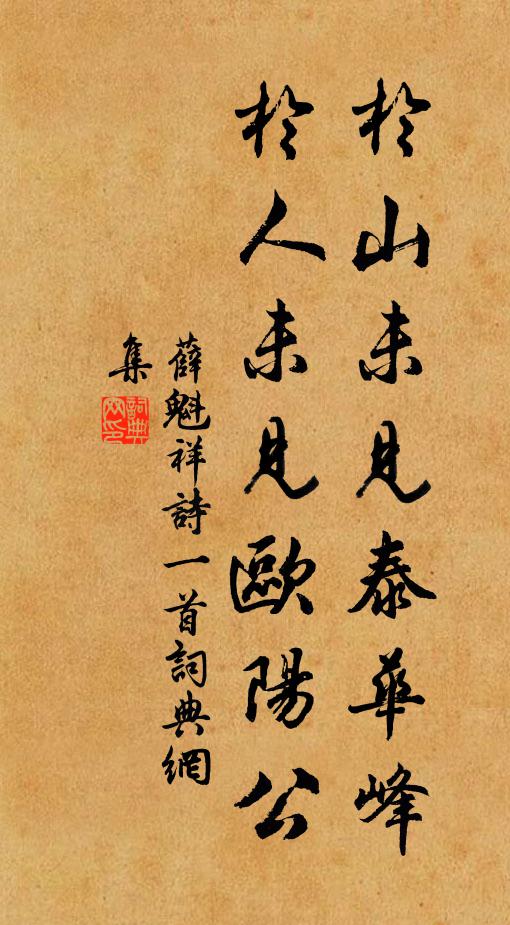 於山未見泰華峰
於人未見歐陽公
薛魁祥詩一首詞典網
集
詞典
網印